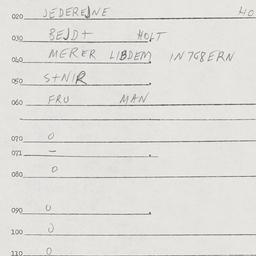 020 JEDEREJNE 40
030 BEJDT HOLT
040 MERER LIBDEM IN768ERN
050 S+NIR
060 FRU MAN
070 0
071 –
080 0
090 0
100 0
110 0